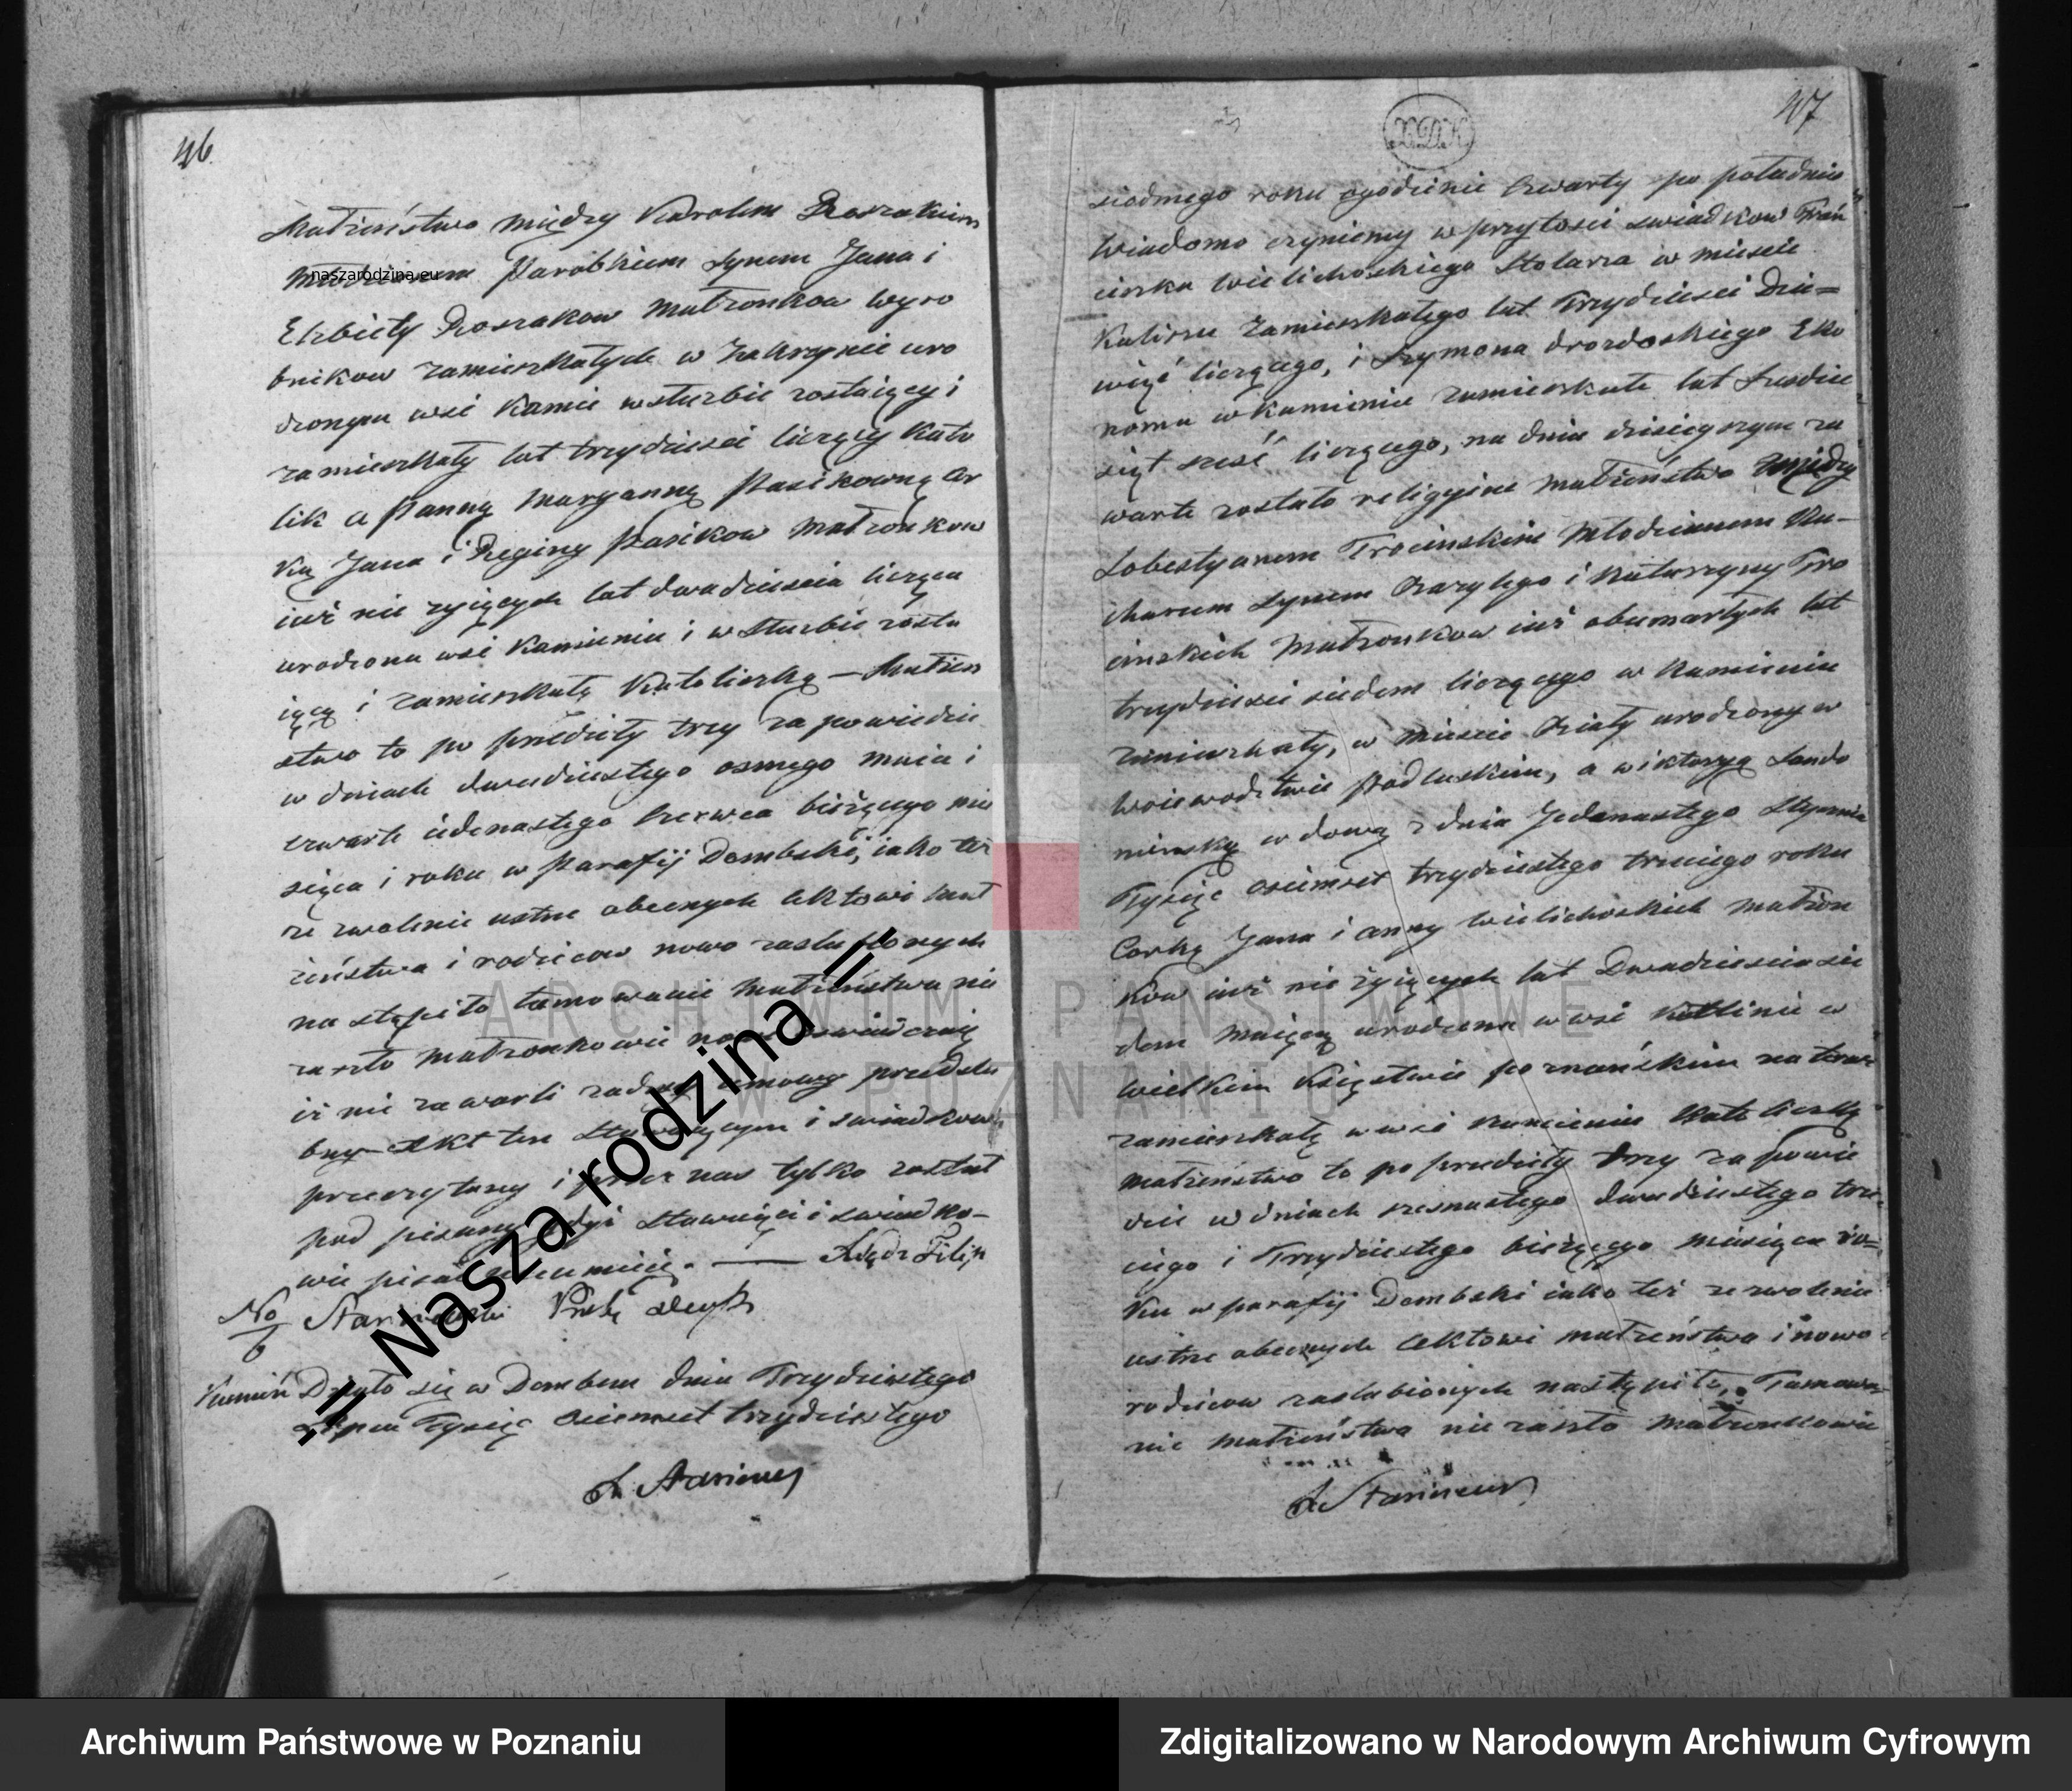 46.
Matzeństwo między Karolem Roszakiem
Młodzianem Parobkiem synem Jana i
naszarodzina.eu
Elzbiety Roszakow Matzonkow wyro
bnikow zamieszkałych w Zakrzynie uro
dzonym wsi Kamie w stuzbie zostaiący i
zamieszkały lat trzydziesci liczący Kato
lik a Panną Maryanną Pasikowną Cor
ką Jana i Reginy Pasikow Matzonkow
iuż nie zyiących lat dwadziescia licząca
urodzona wsi Kamieniu i w Stuzbie zosta
iącą i zamieszkałą Katoliczką — Matzen
stwo to po przedziły trzy zapowiedzie
w dniach dwudziestego osmego maia i
czwarte iedenastego Czerwca bieżącego mie
siąca i roku w Parafij Dembski, iako też
ze zwolenie ustne obecnych Aktowi Mał
żeństwa i rodzicow nowo zaslubionych
nastąpiło tamowanie Matzeństwa nie
zaszło Matzonkowie oswiadczaią
iż nie zawarli zadney umowy przedslu
bny Akt ten Stawaiącym i swiadkowi
przeczytany i przez nas tylko został
podpisany gdyż Stawaiąci i swiadko-
wie pisać nieumieią. — Xiądz Filip
No
6
Kamień Działo się w Dembem dnia Trzydziestego
Lipca Tysiąc Osiemset trzydziestego
47
siodmego roku ogodzinie Czwarty po południu
Wiadomo czyniemy w przytosci swiadkow Fran
ciszka Wielichoskiego Stolarza w miescie
Kaliszu Zamieszkałego lat Trzydziesci Dzie=
więć liczącego, i Szymona drozdoskiego Eko
noma w Kamieniu zamieszkałe lat Piedzie
siąt szesć liczącego, na dniu dzisieyszym za
warte zostało religyine Matzeństwo między
Sobestyanem Trocinskim Młodzianem Ku-
charzem synem Bazylego i Katarzyny Tro
cinskich Matzonkow iuż obumarłych lat
trzydziesci siedem liczącego w Kamieniu
zamieszkały, w Miescie Biały urodzony w
Woiewodztwie Podlaskim, a Wiktoryą Sendo
minską wdową z dnia Jedenastego Stycznia
Tysiąc osiemset trzydziestego trzeciego roku
Corką Jana i Anny Wielichoskich Matzon
kow iuż nie żyiących lat Dwadziescia sie
dem maiącą urodzona w wsi Kotlinie w
Wielkim Księstwie poznańskim na teraz
zamieszkałą w wsi Kamieniu Katoliczką
Matzeństwo to po przedziły trzy zapowie
dzie w dniach szesnastego dwudziestego trze
ciego i Trzydziestego bieżącego miesiąca ro=
ku w parafij Dembski iako też zezwolenie
ustne obecnych Aktowi matzeństwa i nowo
rodzicow zaslubionych nastąpiło, Tamowa-
nie matzeństwa nie zaszło Matzonkowie
ARCHIWUM PAŃSTWOWE
W POZNANIU
-=| Nasza rodzina |=-
Archiwum Państwowe w Poznaniu
Zdigitalizowano w Narodowym Archiwum Cyfrowym